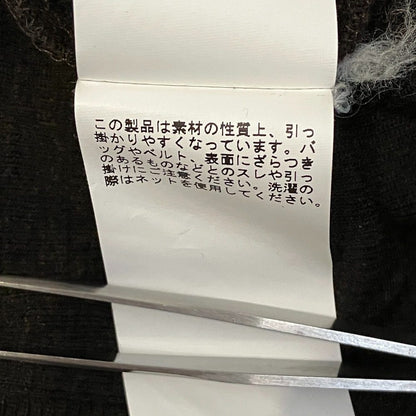 この製品は素材の性質上、引っ
掛かりやすくなっています。バ
ッグやベルト、表面にざらつき
のあるものなどとのスレや引っ
掛けにご注意ください。洗濯の
際はネットを使用してください。